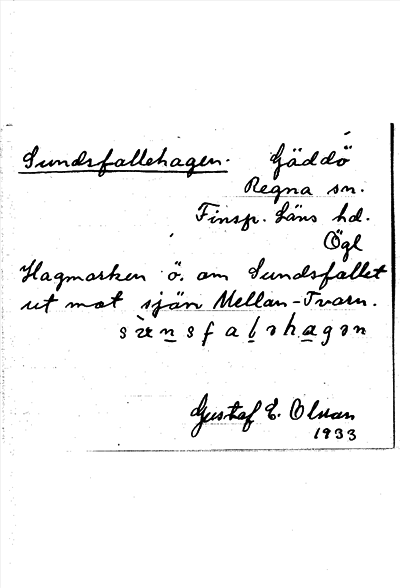 Sundsfallehagen. Gäddö
Regna sn.
Finsp. Läns hd.
Ögl
Hagmarken ö. om Sundsfallet
ut mot sjön Mellan-Tvarn.
Gustaf E. Olson
1933